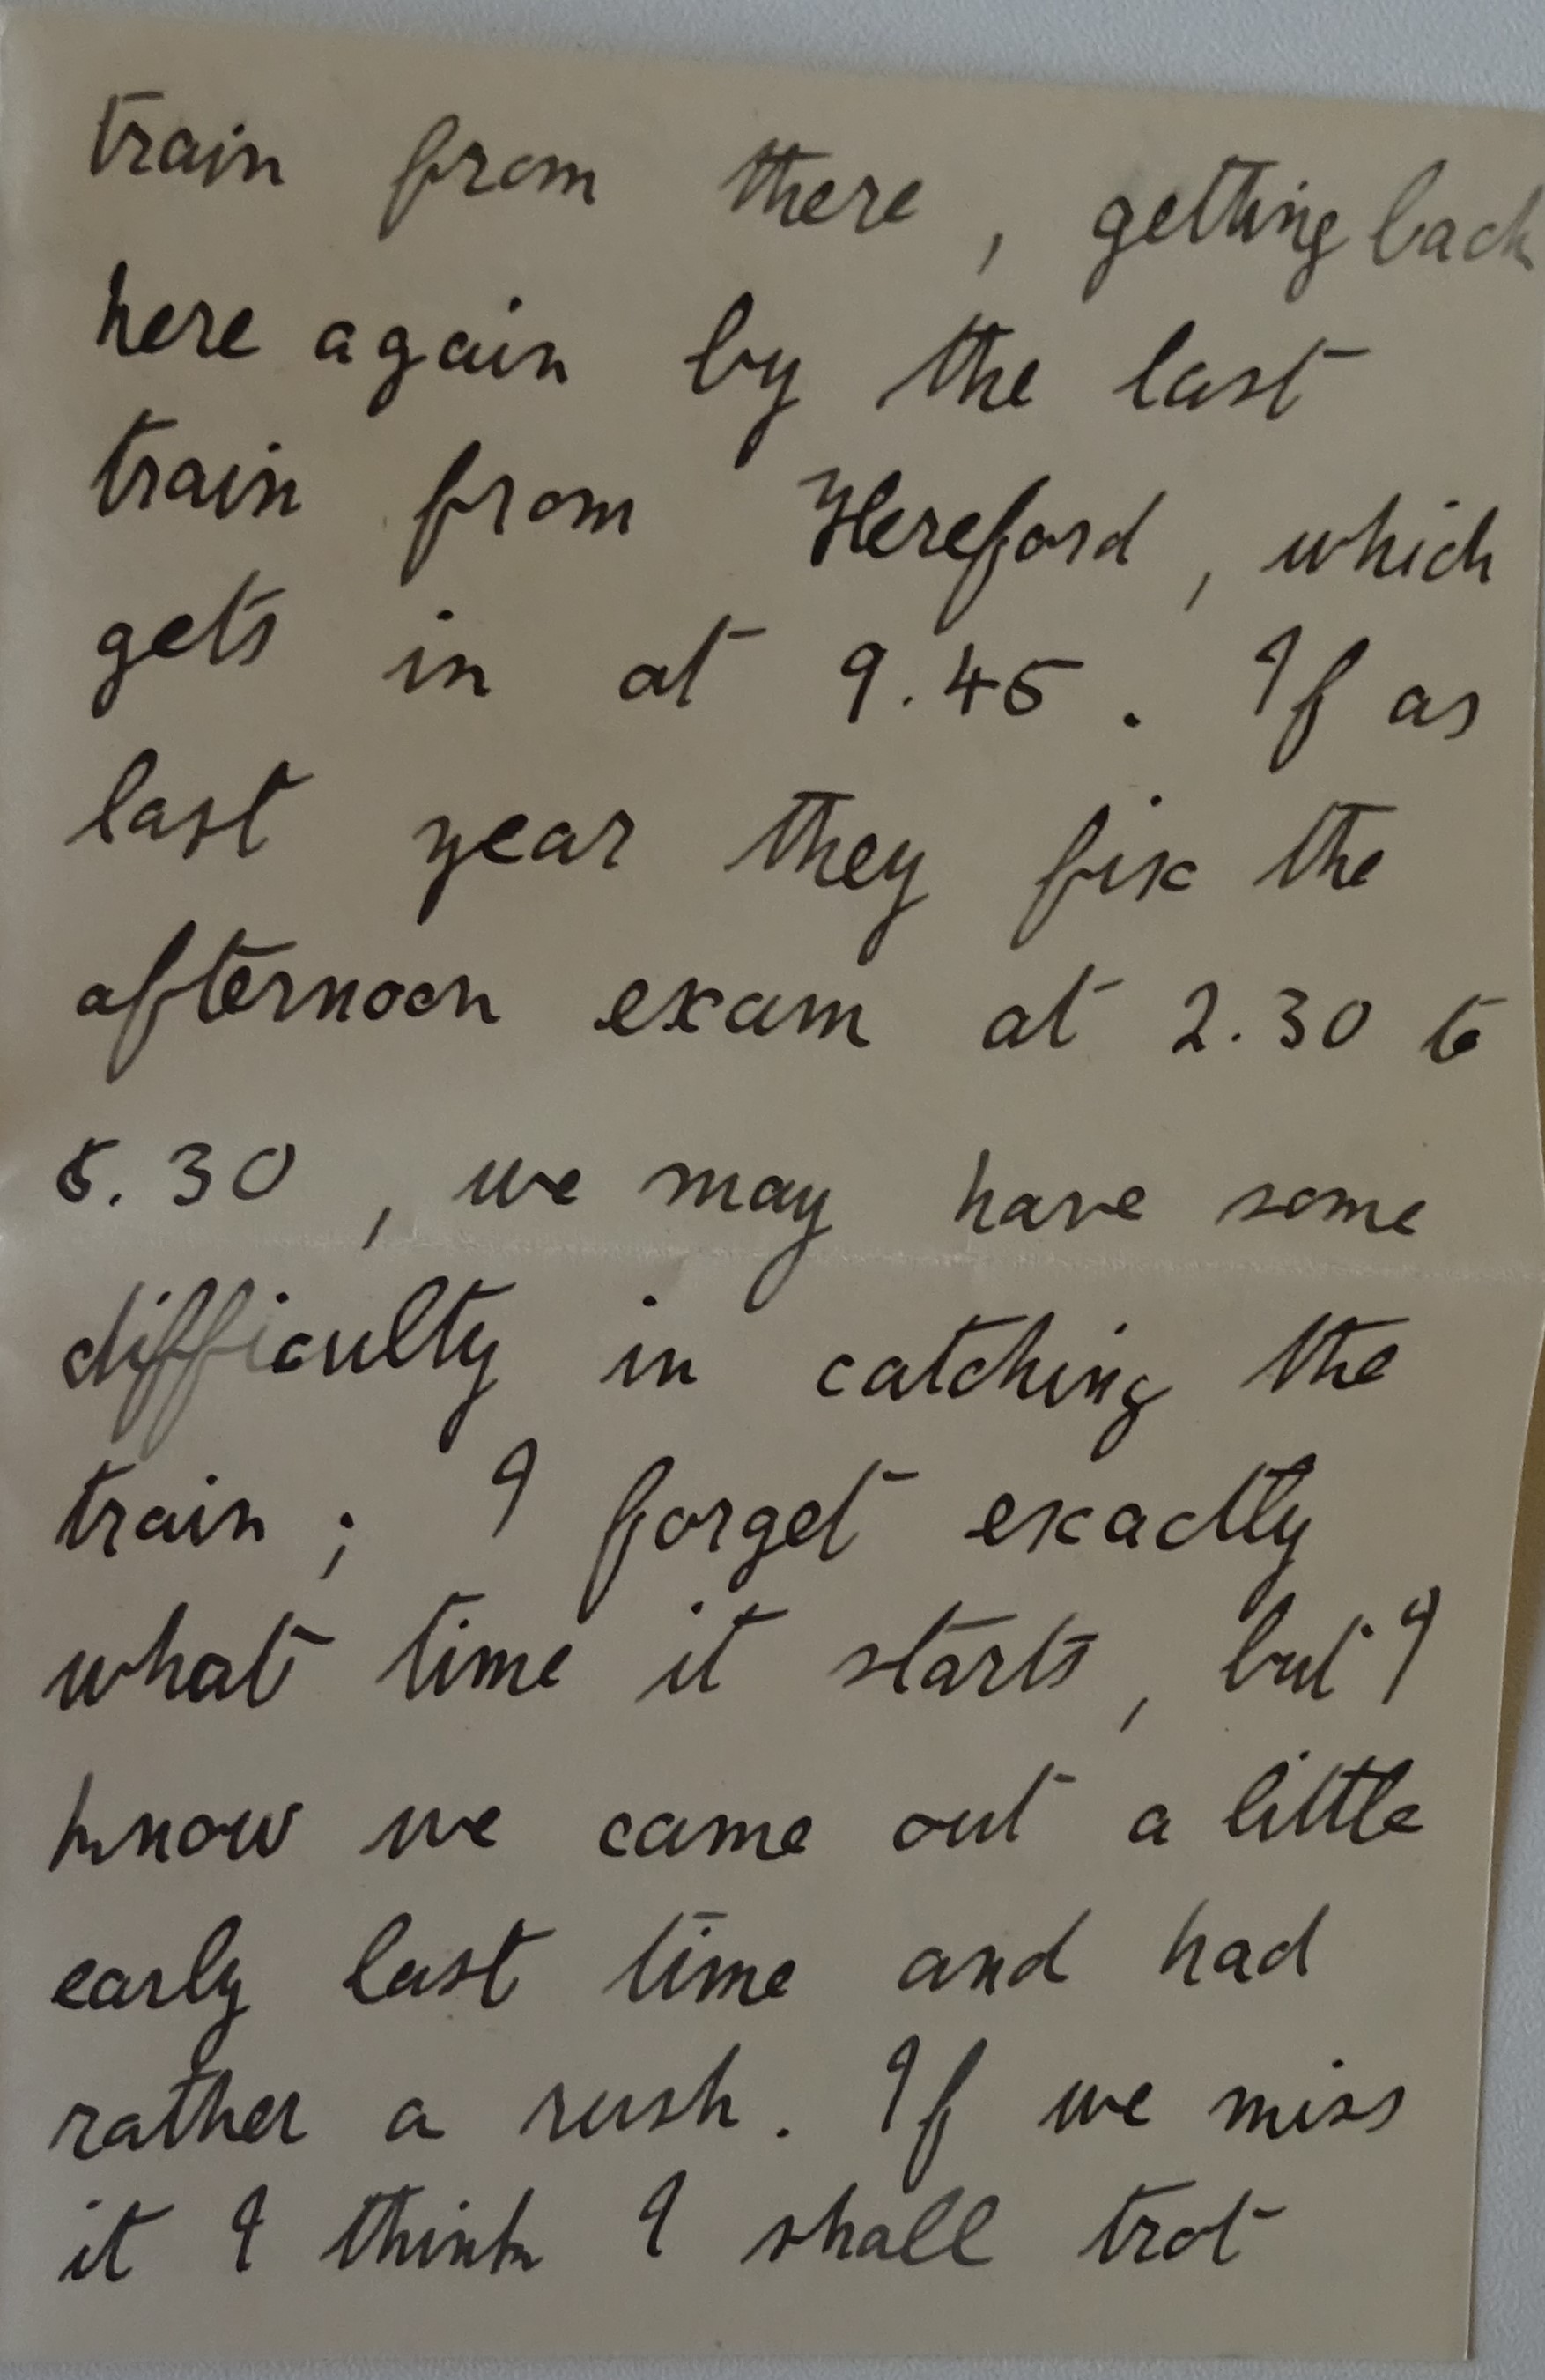 train from there, getting back
here again by the last
train from Hereford, which
gets in at 9.45. If as
last year they fix the
afternoon exam at 2.30 to
5.30, we may have some
difficulty in catching the
train; I forget exactly
what time it starts, but I
know we came out a little
early last time and had
rather a rush. If we miss
it I think I shall trot